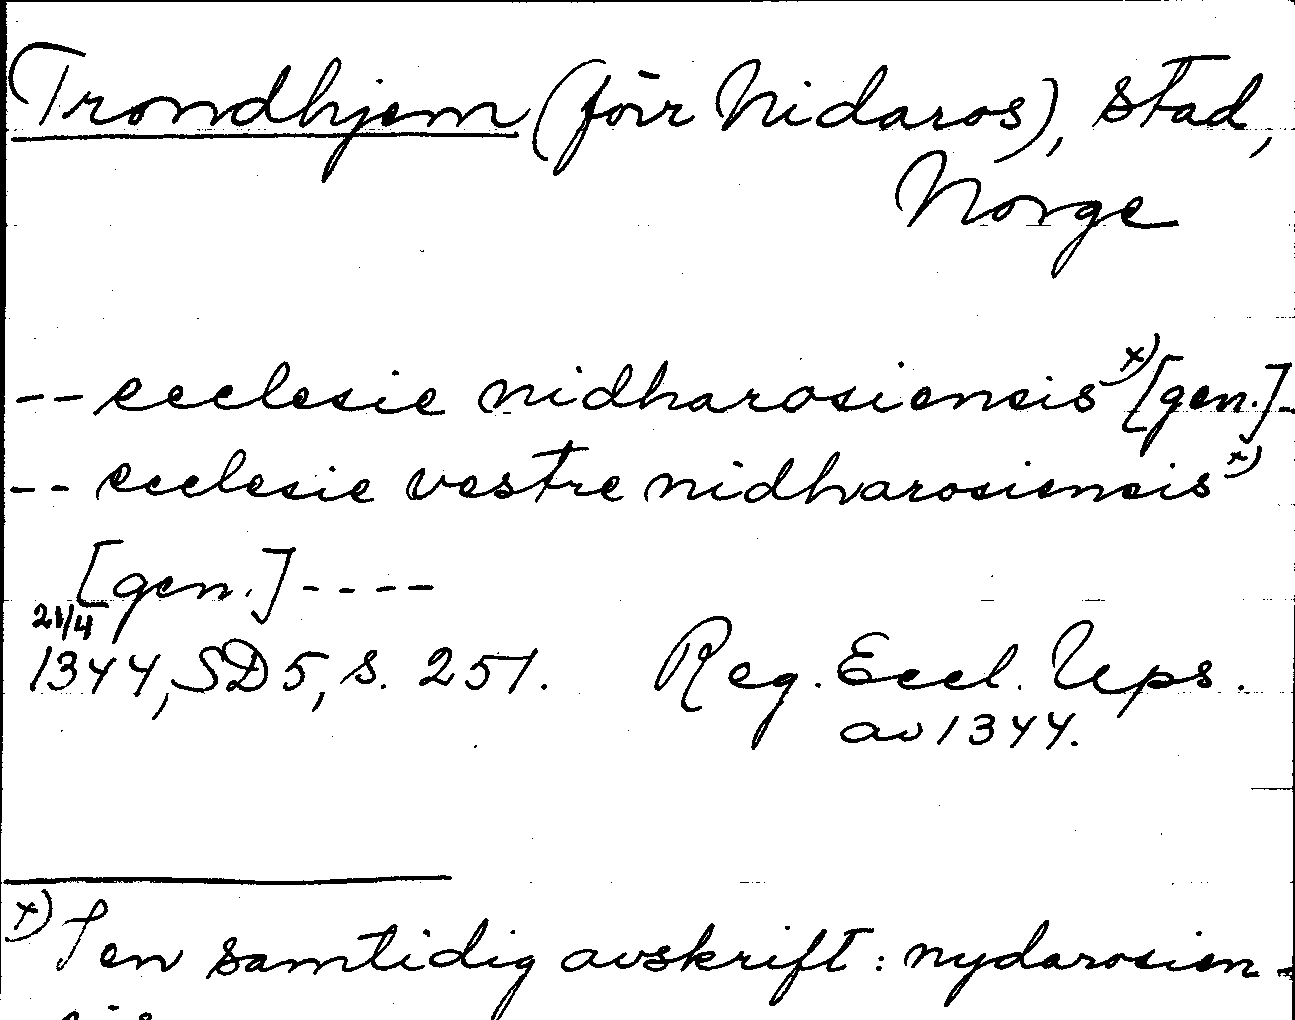 Trondhjem (förr Nidaros), stad,
Norge
-- ecclesie nidharosiensis x) [gen.] -
-- ecclesie vestre nidharosiensis x)
[gen.] ----
21/4
1344, SD 5, s. 251. Reg. Eccl. Ups.
av 1344.
x) I en samtidig avskrift: nydarosien-
sis